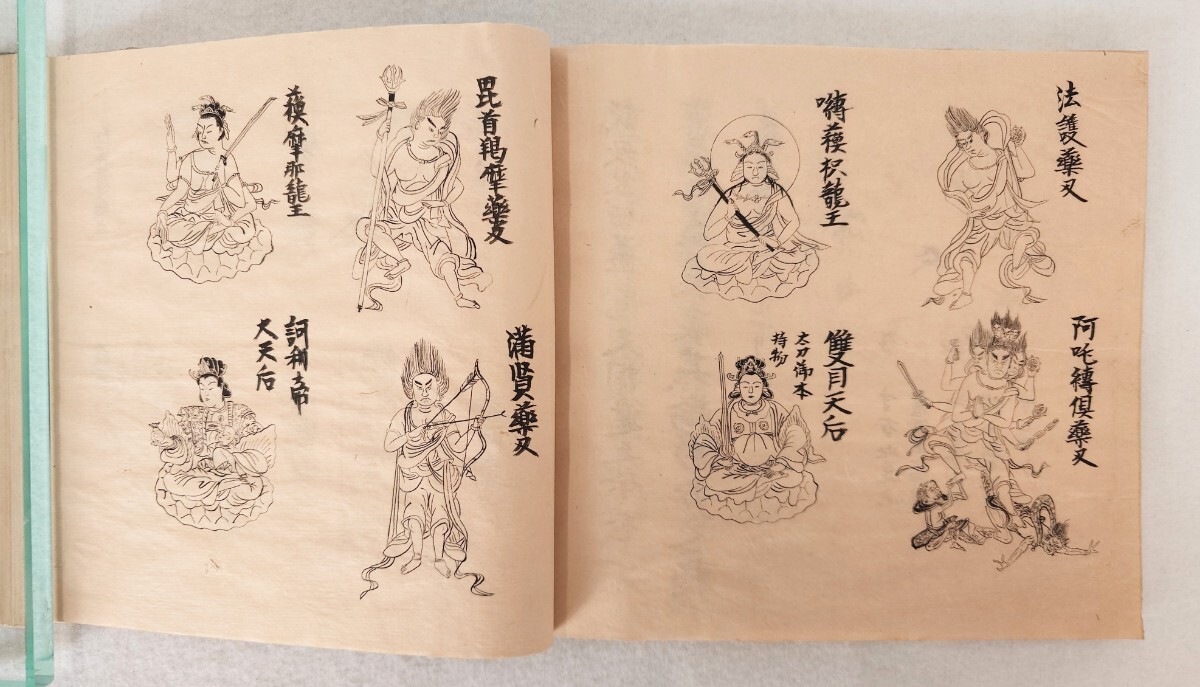 法護藥叉
阿吒縛倶藥叉
嚩蘓枳龍王
雙目天后
太刀御本
持物
毘首羯摩藥叉
滿賢藥叉
蘓摩那龍王
訶利帝
大天后